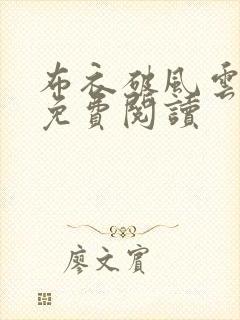 布衣破風雲
免費閱讀
廖文賓